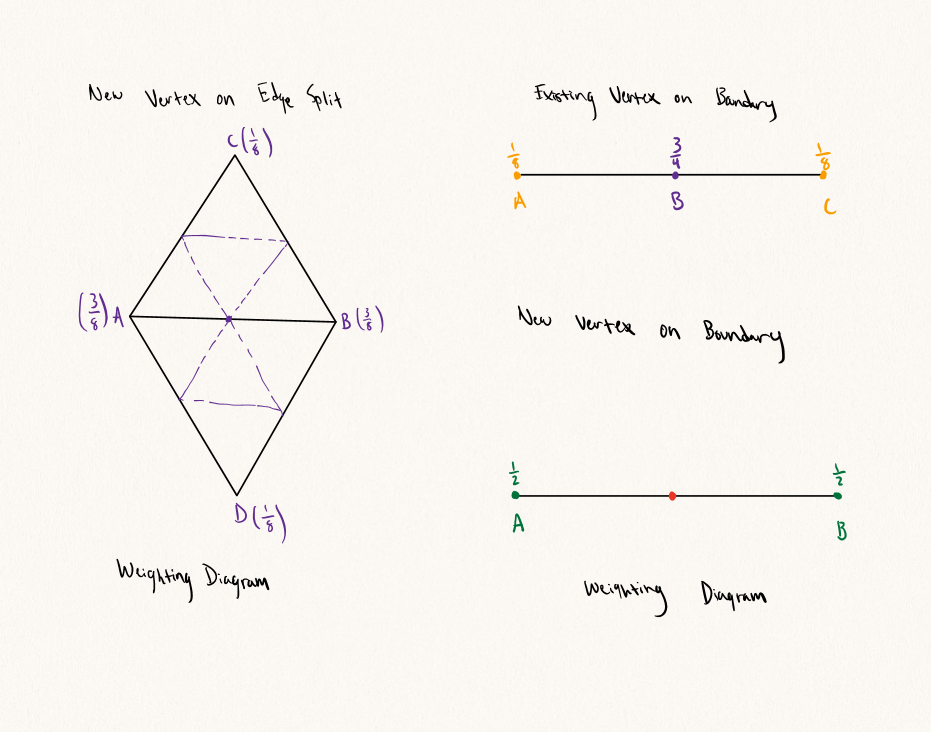 New Vertex on Edge Split
C (1/8)
(3/8) A
B (3/8)
D (1/8)
Weighting Diagram
Existing Vertex on Bandary
1/8 3/4 1/8
A B C
New Vertex on Boundary
1/2 1/2
A B
Weighting Diagram